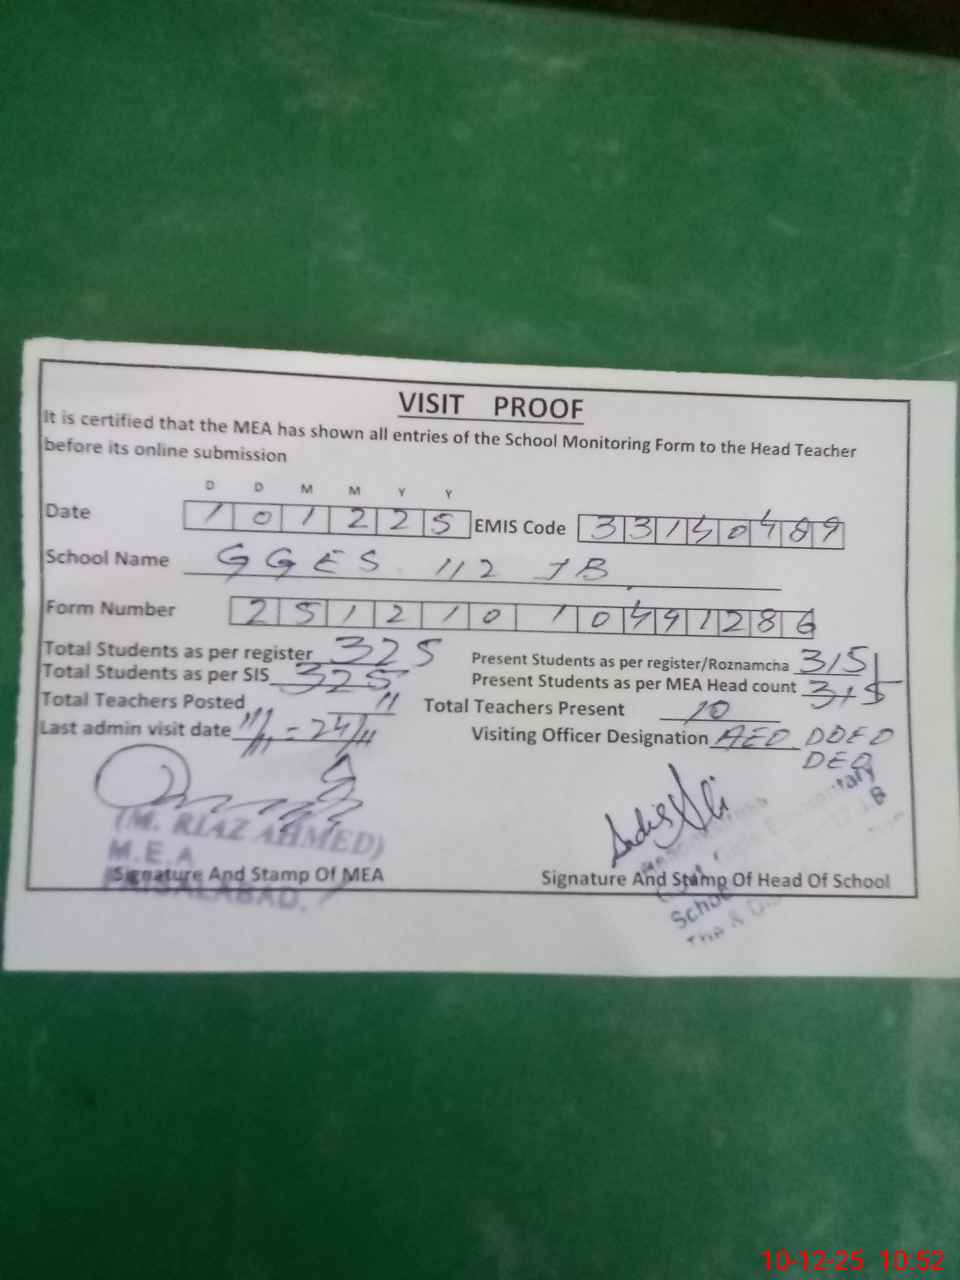 VISIT PROOF
It is certified that the MEA has shown all entries of the School Monitoring Form to the Head Teacher
before its online submission
D D M M Y Y
Date 1 0 1 2 2 5 EMIS Code 3 3 1 4 0 4 8 9
School Name GGES 112 JB
Form Number 2 5 1 2 1 0 1 0 4 9 1 2 8 6
Total Students as per register 325 Present Students as per register/Roznamcha 315
Total Students as per SIS 325 Present Students as per MEA Head count 315
Total Teachers Posted 11 Total Teachers Present 10
Last admin visit date = 24/11 Visiting Officer Designation AEO DDEO
DEO
(M. RIAZ AHMED)
M.E.A
FAISALABAD.
Signature And Stamp Of MEA Signature And Stamp Of Head Of School
10-12-25 10:52